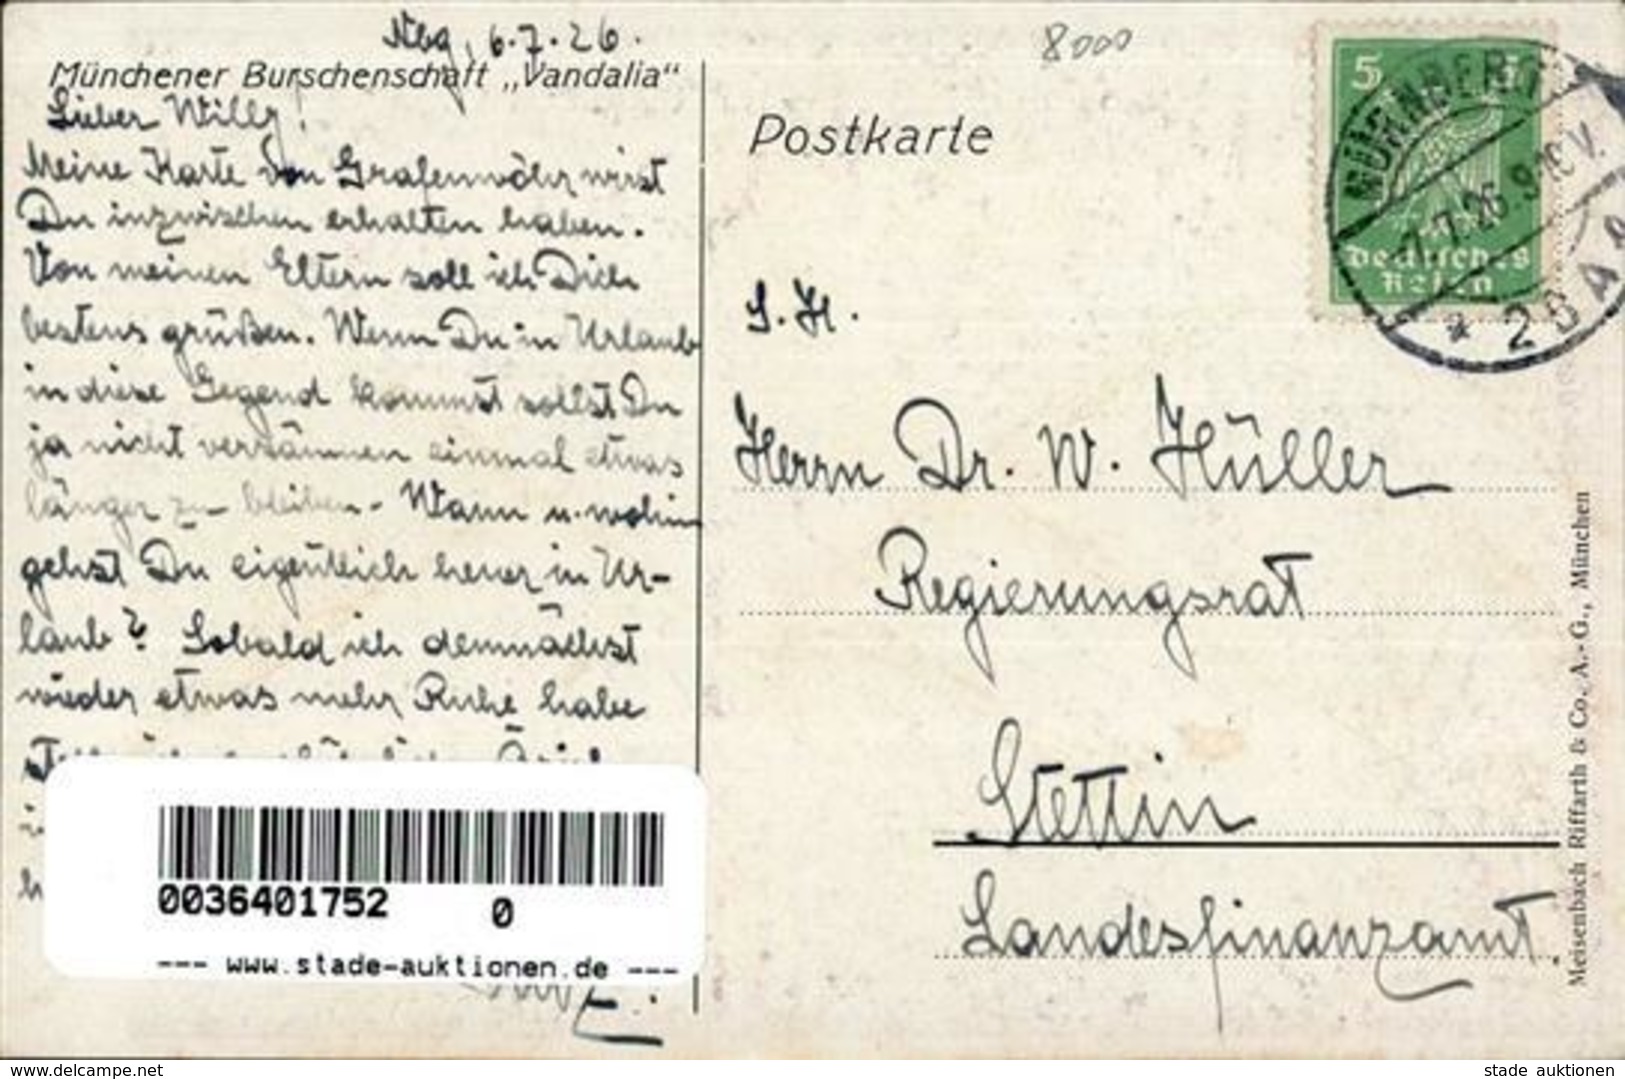 Nbg, 6.7.26.
Münchener Burschenschaft „Vandalia"
Lieber Willy!
Meine Karte von Grafenwöhr wirst
Du inzwischen erhalten haben.
Von meinen Eltern soll ich Dich
bestens grüßen. Wenn Du in Urlaub
in diese Gegend kommst sollst Du
ja nicht versäumen einmal etwas
länger zu bleiben. Wann u. wohin
gehst Du eigentlich heuer in Ur-
laub? Sobald ich demnächst
wieder etwas mehr Ruhe habe
0036401752 0
--- www.stade-auktionen.de ---
8000
Postkarte
5 5
Deutsches
Reich
NÜRNBERG
7.7.26. 9-10 V.
* 2 B A A
S. H.
Herrn Dr. W. Hüller
Regierungsrat
Stettin
Landesfinanzamt.
Meisenbach Riffarth & Co. A.-G., München
www.delcampe.net
stade auktionen